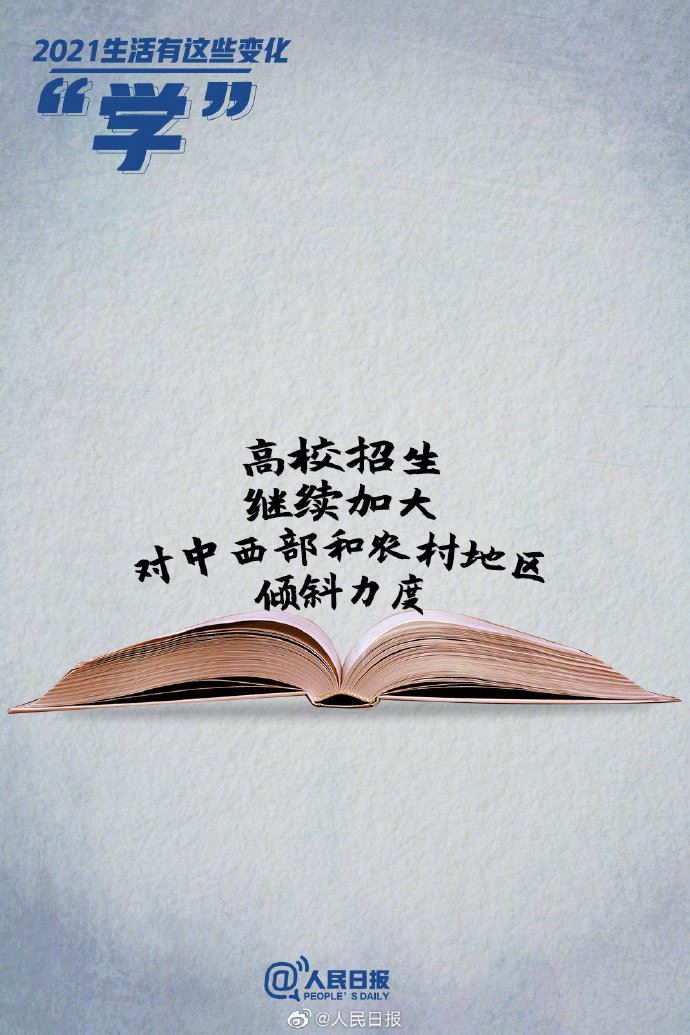 2021生活有这些变化
“学”
高校招生
继续加大
对中西部和农村地区
倾斜力度
@人民日报
PEOPLE'S DAILY
@人民日报